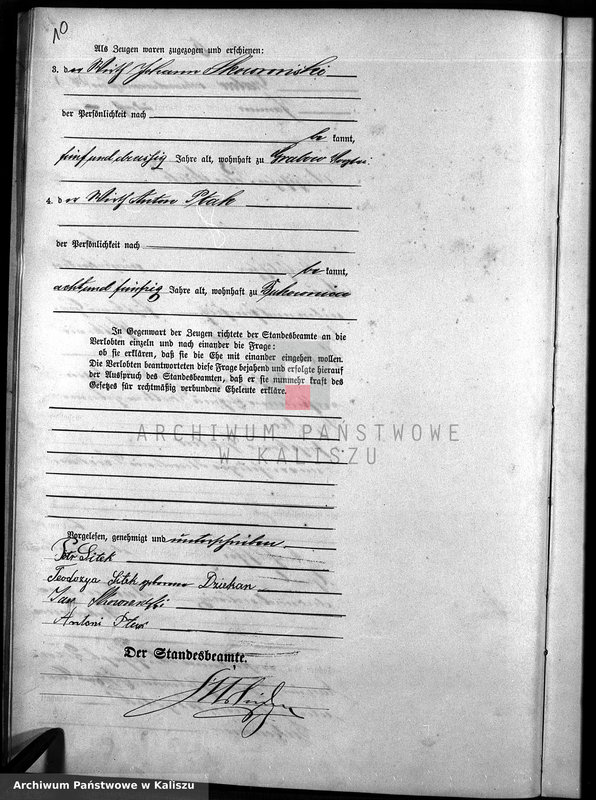 10
Als Zeugen waren zugezogen und erschienen:
3. der Wirth Johann Skowronski
der Persönlichkeit nach
be kannt,
fünfunddreißig Jahre alt, wohnhaft zu Grabow
4. der Wirth Anton Ptak
der Persönlichkeit nach
be kannt,
achtundfünfzig Jahre alt, wohnhaft zu Bukownica
In Gegenwart der Zeugen richtete der Standesbeamte an die
Verlobten einzeln und nach einander die Frage:
ob sie erklären, daß sie die Ehe mit einander eingehen wollen.
Die Verlobten beantworteten diese Frage bejahend und erfolgte hierauf
der Ausspruch des Standesbeamten, daß er sie nunmehr kraft des
Gesetzes für rechtmäßig verbundene Eheleute erkläre.
ARCHIWUM PAŃSTWOWE
W KALISZU
Vorgelesen, genehmigt und unterschrieben
Piotr Sitek
Teodozya Sitek geborene
Jan Skowroński
Antoni Ptak
Der Standesbeamte.
Archiwum Państwowe w Kaliszu